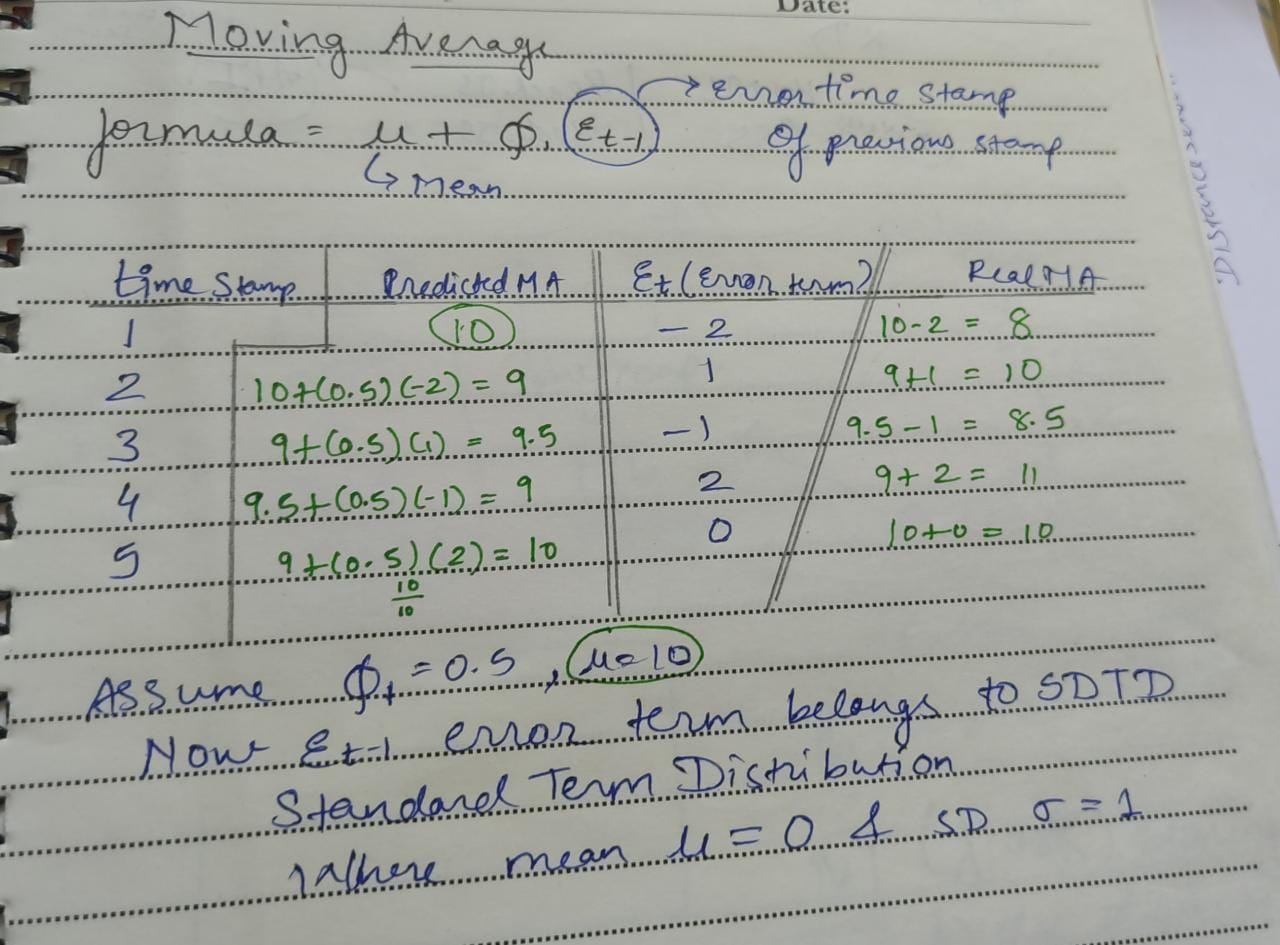 Date:
Moving Average
formula = μ + Φ₁ (Ɛt-1) → error time stamp
of previous stamp
↳ Mean
time Stamp Predicted MA Ɛt (Error term) Real MA
1 10 -2 10-2 = 8
2 10+(0.5)(-2) = 9 1 9+1 = 10
3 9+(0.5)(1) = 9.5 -1 9.5-1 = 8.5
4 9.5+(0.5)(-1) = 9 2 9+2 = 11
5 9+(0.5)(2) = 10 0 10+0 = 10
10
10
Assume Φt = 0.5, μ=10
Now Ɛt-1 error term belongs to SDTD
Standard Term Distribution
Where mean μ = 0 & SD σ = 1